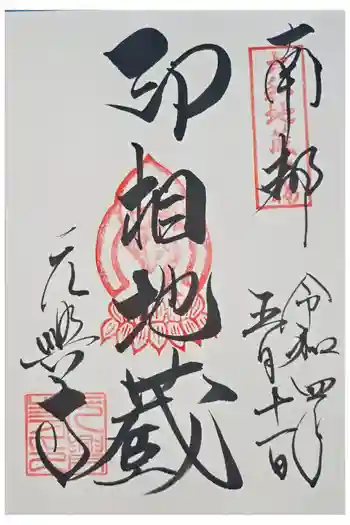 南都
令和四年
五月十一日
印相地蔵
元興寺